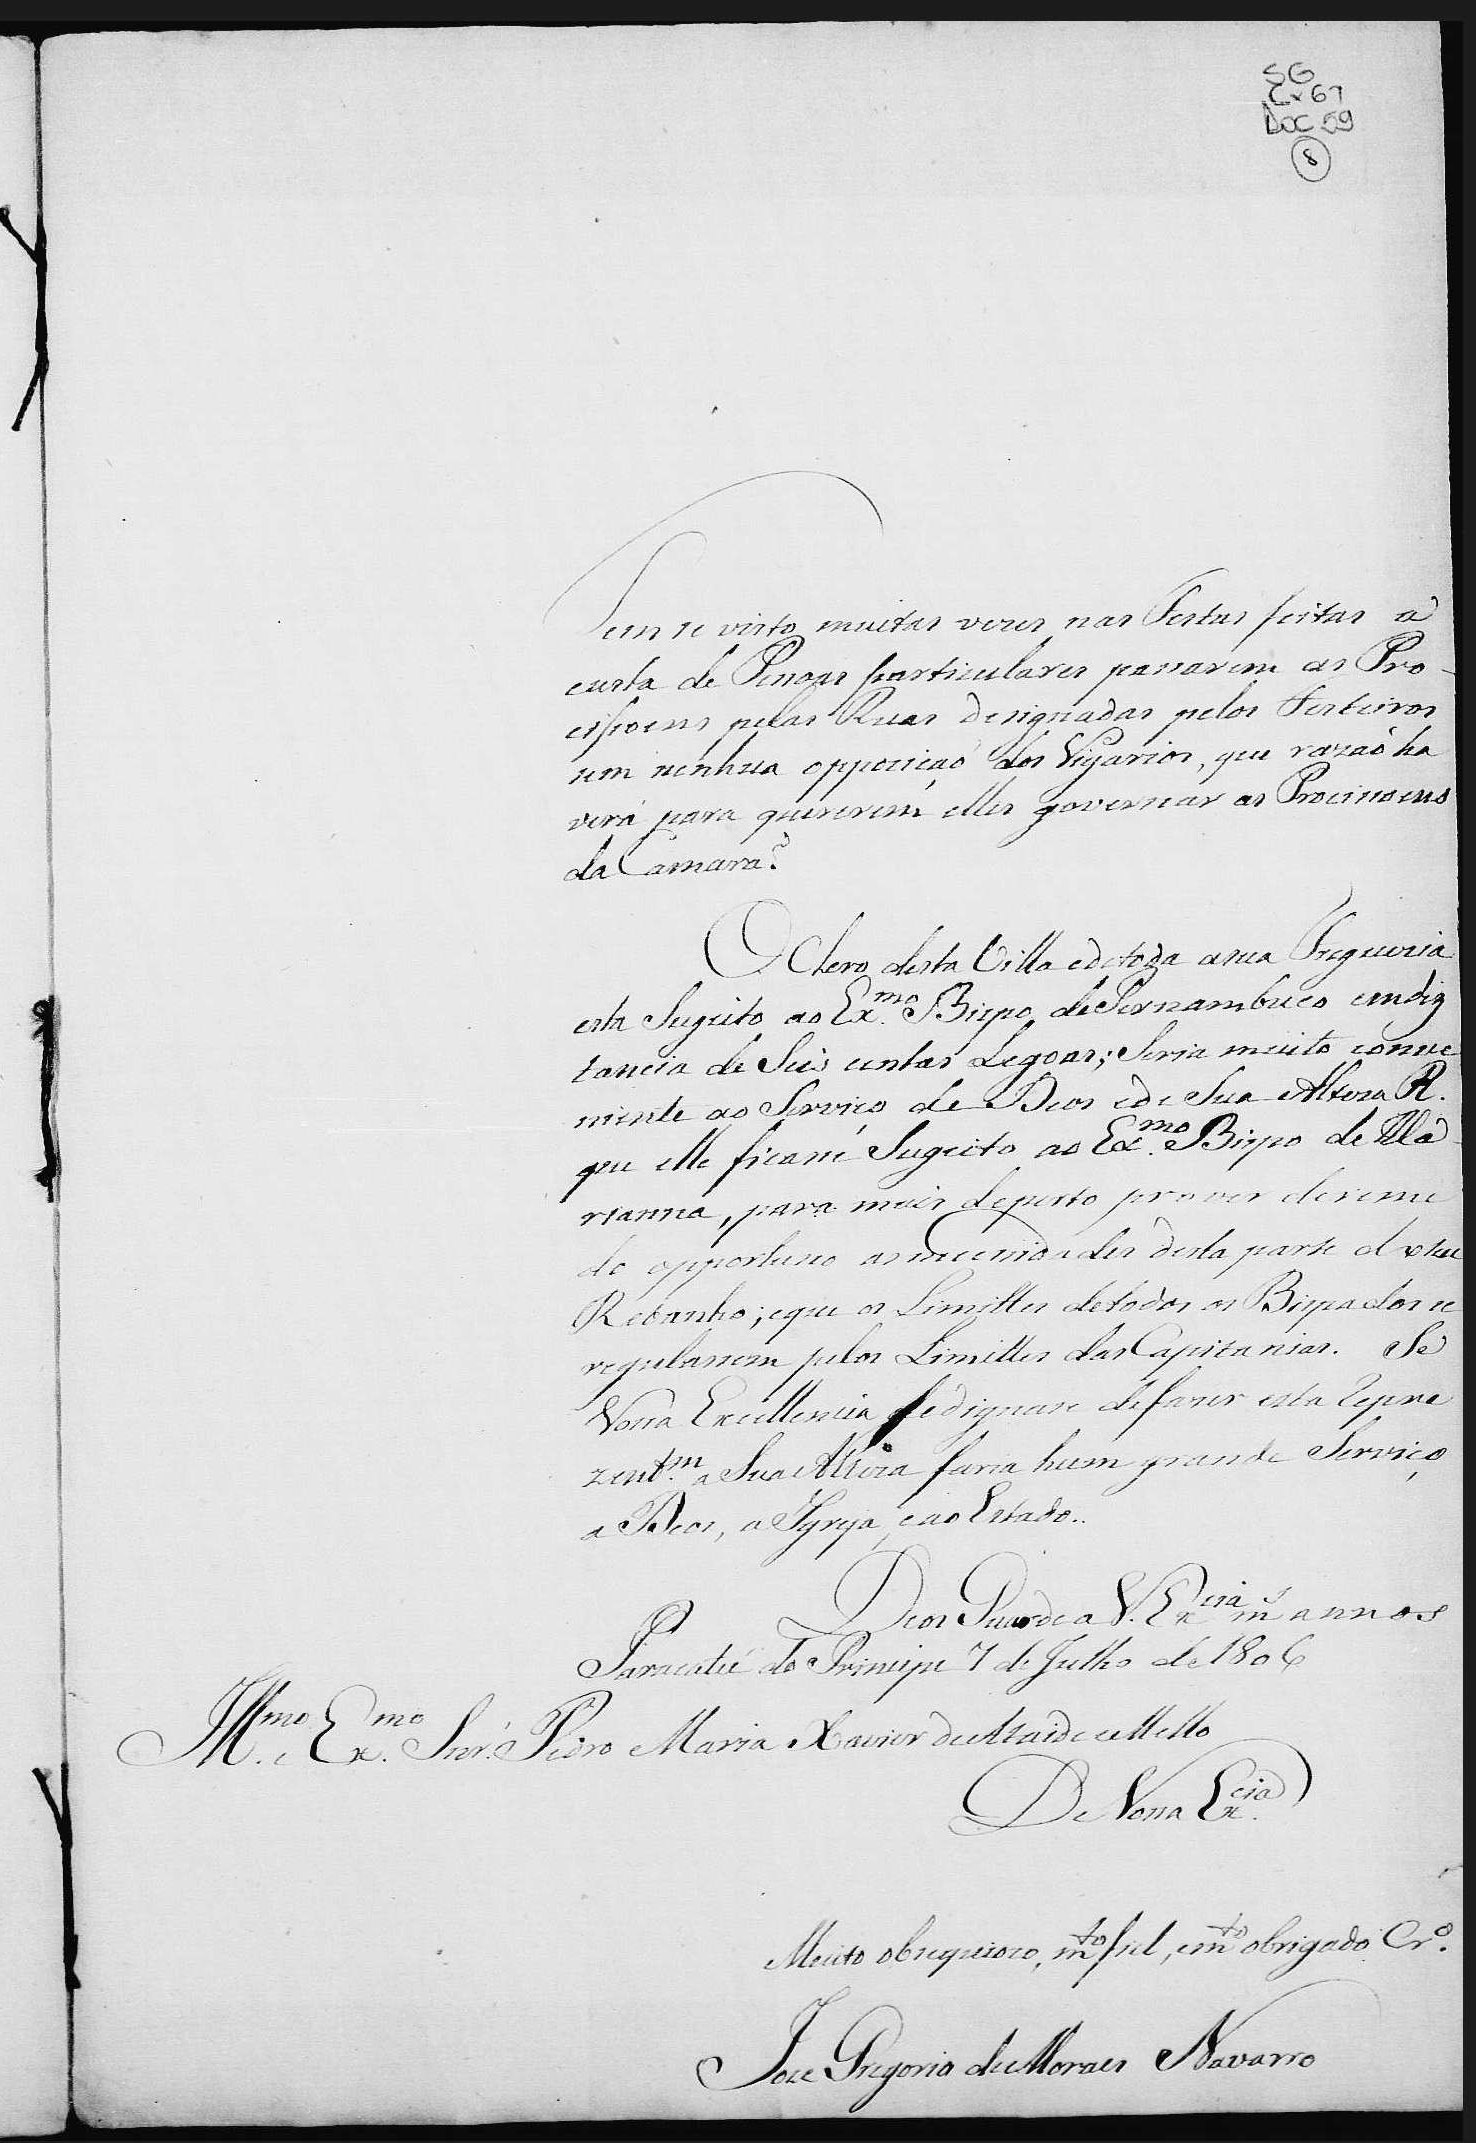 SG
Cx 67
DOC 59
8
Tem se visto muitas vezes nas Festas feitas á
custa de Pessoas particulares passarem as Pro-
cissoens pelas Ruas designadas pelos Festeiros
sem nenhua opposiçaõ dos Vigarios, que razaõ ha
verá para quererem elles governar as Procissoens
da Camara?
O Clero desta Villa e de toda a sua Freguezia
esta Sugeito ao Ex.mo Bispo de Pernambuco em diz
tancia de Seis centas Legoas; Seria muito conve
niente ao Serviço de Deos e de Sua Alteza R.
que elle ficasse Sugeito ao Ex.mo Bispo de Ma-
rianna, para mais de perto prover de reme
do opportuno as necessidades desta parte do seu
Rebanho; e que os Limittes de todos os Bispados se
regulassem pelos Limittes das Capitanias. Se
Vossa Excellencia se dignase de fazer esta repre
zent.m a Sua Alteza faria hum grande Serviço
a Deos, a Igreja, e ao Estado..
Deos Guarde a V. Excia ms annos
Paracatú do Principe 7 de Julho de 1806
Ill.mo e Ex.mo Snr. Pedro Maria Xavier de Ataide e Mello
De Vossa Ex.cia
Muito obsequioso, mto fiel, e mto obrigado Cr.o
Joze Gregorio de Moraes Navarro